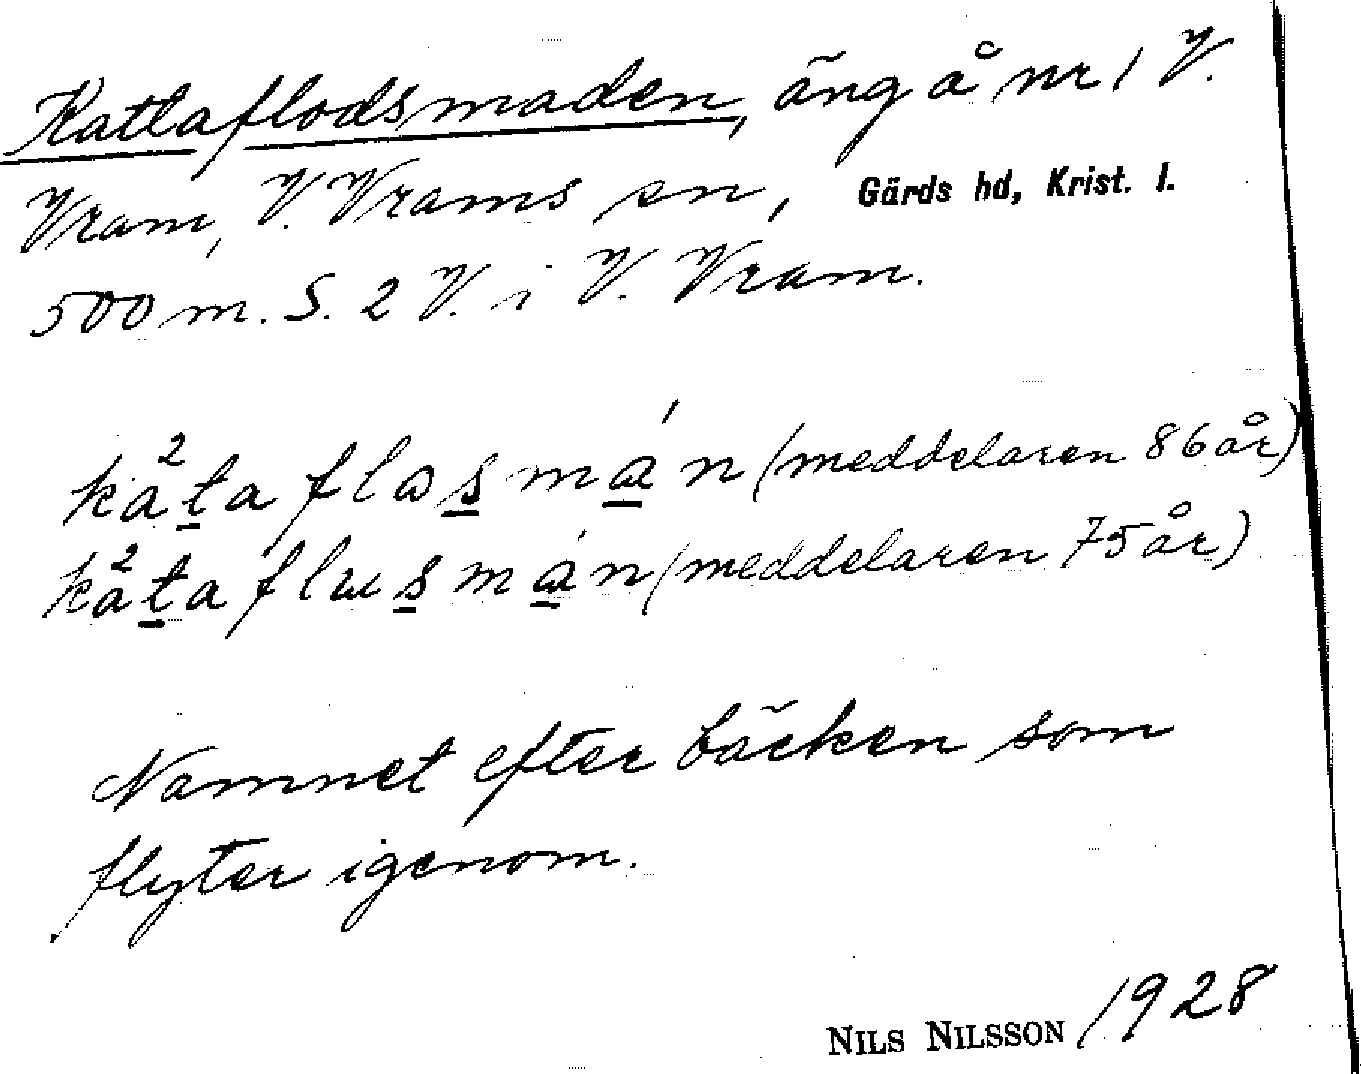 Kattaflodsmaden, äng å nr 1 V.
Vram, V. Vrams sn, Gärds hd, Krist. l.
500 m. S. 2 V. i V. Vram.
(meddelaren 86 år)
(meddelaren 75 år)
Namnet efter bäcken som
flyter igenom.
NILS NILSSON 1928